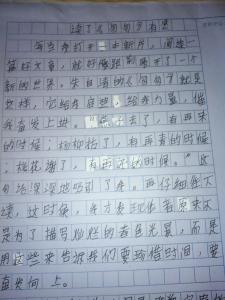 读了《匆匆》有感
每当我打开一本新书，阅读一
篇好文章，就好像跟到了一个
新的世界。朱自清的《匆匆》就是
这样，它给我启迪，给我力量，催
我奋发上进。“燕子去了，有再来
的时候；杨柳枯了，有再青的时候
；桃花谢了，有再开的时候。”这
句话深深地吸引了我。再仔细往下
读，这时候，我才发现作者原来不
是为了描写灿烂的春色光景，而是
用这些来告诉我们要珍惜时间，要
奋发向上。